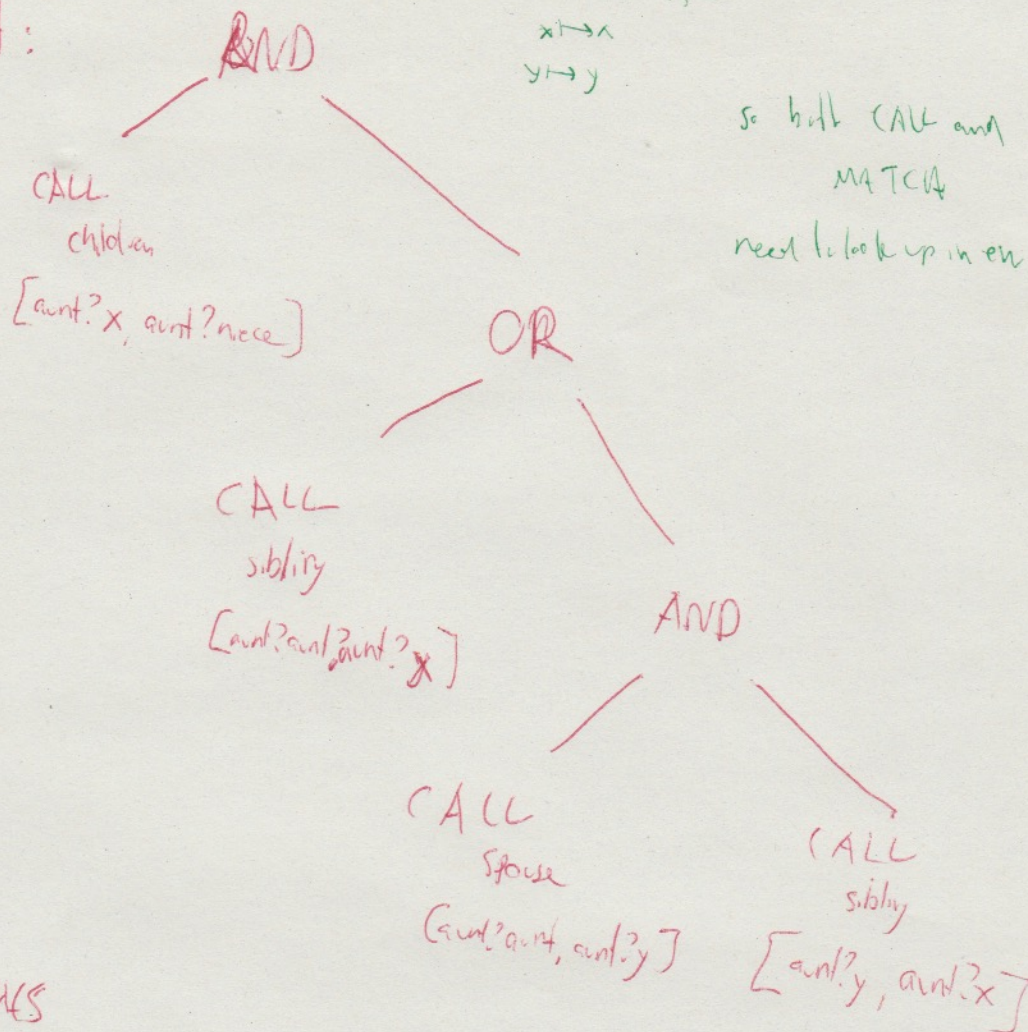 AND
x↦x
y↦y
so both CALL and
MATCH
need to look up in en
CALL
children
[aunt?x, aunt?niece]
OR
CALL
sibling
[aunt?aunt, aunt?x]
AND
CALL
spouse
[aunt?aunt, aunt?y]
CALL
sibling
[aunt?y, aunt?x]